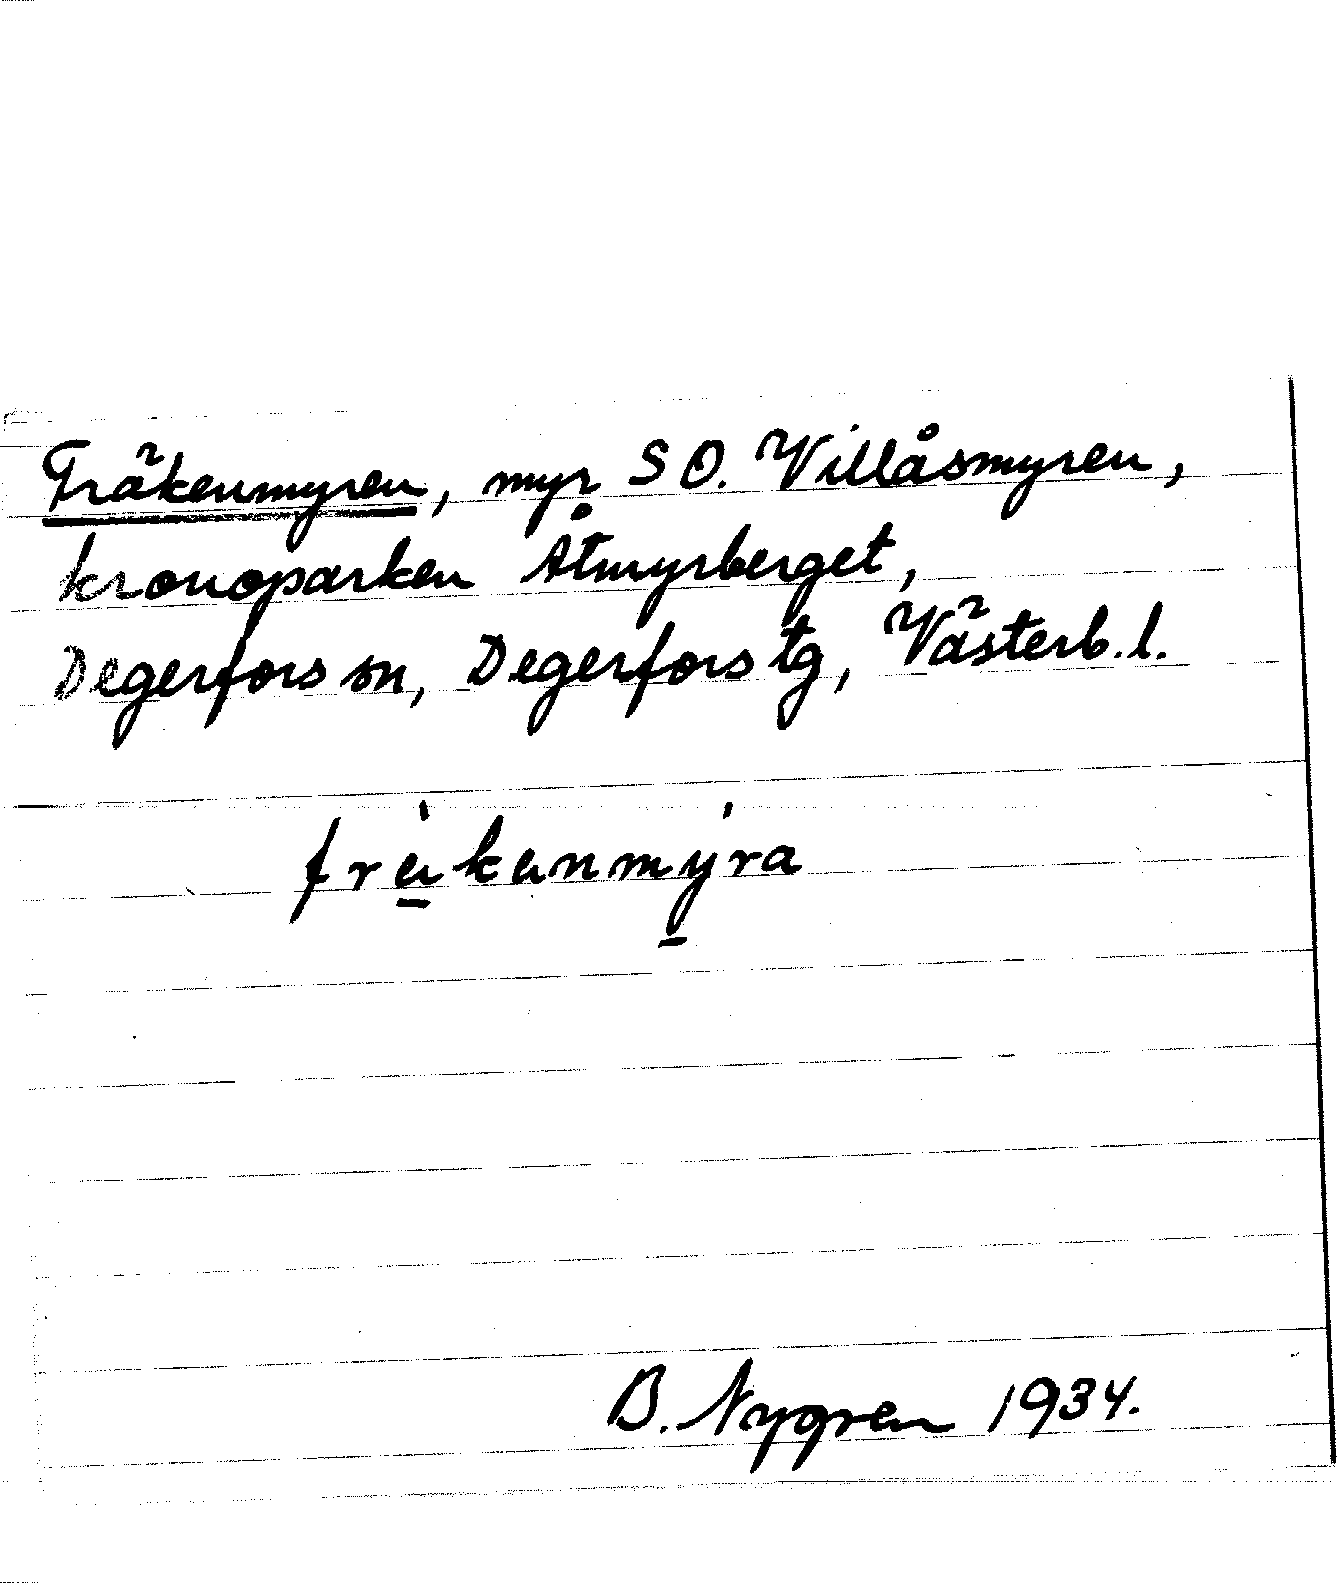 Fräkenmyren, myr SO. Villåsmyren,
kronoparken Åtmyrberget,
Degerfors sn, Degerfors tg, Västerb. l.
fr<u>ä̀</u>känm<u>ý</u>ra
B. Nygren 1934.